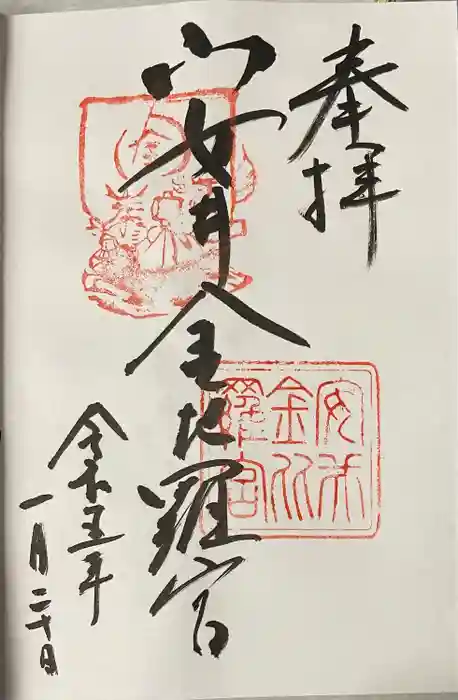 奉拝
安井金比羅宮
安井
金比
羅宮
令和五年
一月二十日